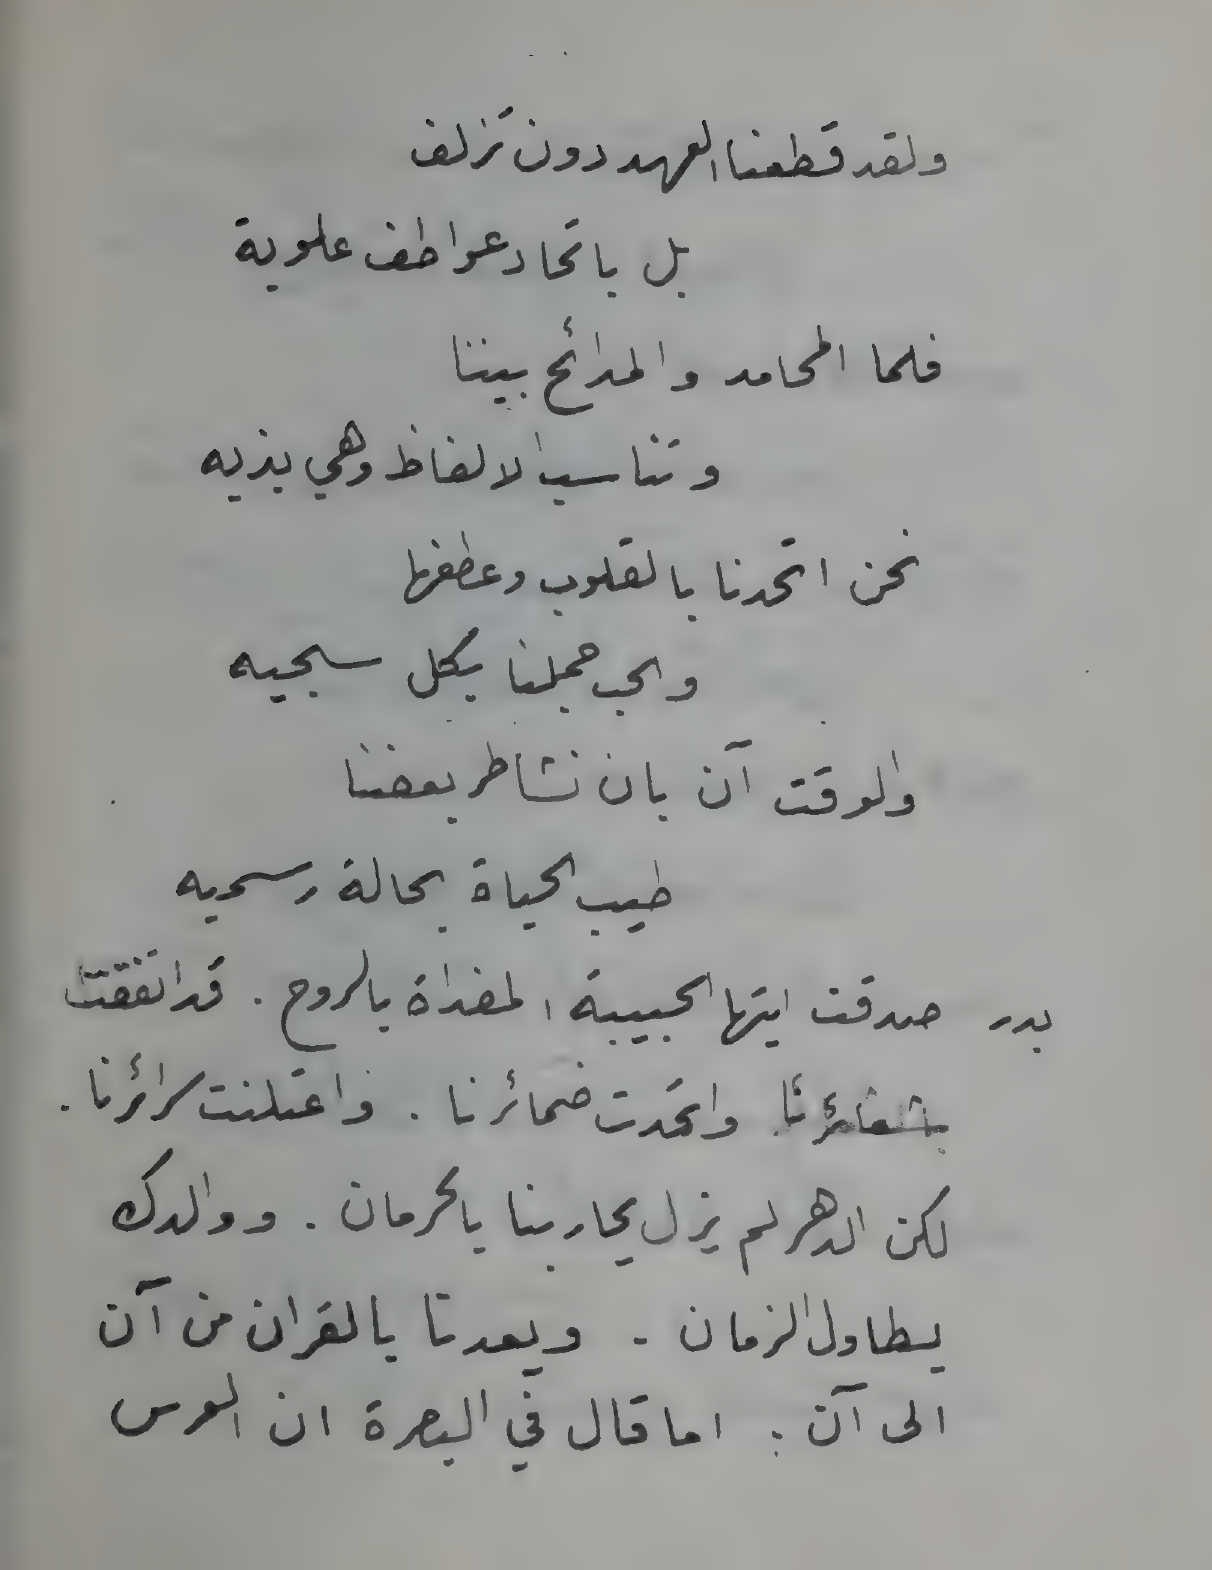 ولقد قطعنا العهد دون تزلف
بل باتحاد عواطف علوية
فلما المحامد والمدائح بيننا
وتناسب الالفاظ وهي بذيه
نحن اتحدنا بالقلوب وعطفها
والحب جملنا بكل سجيه
والوقت آن بان نشاطر بعضنا
طيب الحياة بحالة رسميه
بدر صدقت ايتها الحبيبة المفداة بالروح . قد اتفقتا
شعائرنا واتحدت ضمائرنا . واعتلنت سرائرنا .
لكن الدهر لم يزل يحاربنا بالحرمان . ووالدك
يطاول الزمان . ويعدنا بالقران من آن
الى آن . اما قال في البصرة ان العرس